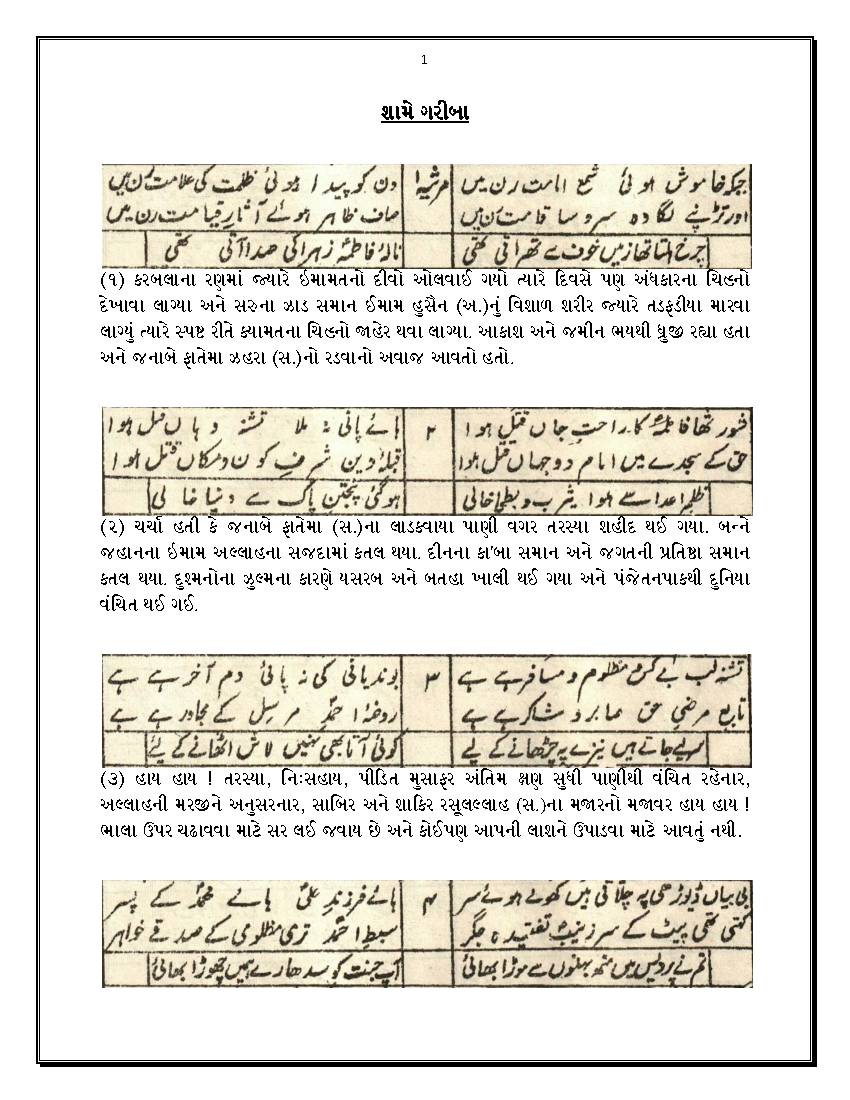 1
શામે ગરીબા
جبکہ خاموش ہوئی شمع امامت رن میں مرثیہ ۱ دن کو پیدا ہوئی ظلمت کی علامت رن میں
اور تڑپنے لگا وہ سرو سا قامت رن میں صاف ظاہر ہوئے آثارِ قیامت رن میں
چرخ ہلتا تھا زمیں خوف سے تھراتی تھی نالۂ فاطمہ زہرا کی صدا آتی تھی
(૧) કરબલાના રણમાં જ્યારે ઇમામતનો દીવો ઓલવાઈ ગયો ત્યારે દિવસે પણ અંધકારના ચિહ્નો
દેખાવા લાગ્યા અને સરુના ઝાડ સમાન ઈમામ હુસૈન (અ.)નું વિશાળ શરીર જ્યારે તડફડીયા મારવા
લાગ્યું ત્યારે સ્પષ્ટ રીતે ક્યામતના ચિહ્નો જાહેર થવા લાગ્યા. આકાશ અને જમીન ભયથી ધ્રુજી રહ્યા હતા
અને જનાબે ફાતેમા ઝહરા (સ.)નો રડવાનો અવાજ આવતો હતો.
شور تھا فاطمہ کا راحتِ جاں قتل ہوا ۲ ہائے پانی نہ ملا تشنہ دہاں قتل ہوا
حق کے سجدے میں امام دو جہاں قتل ہوا قبلۂ دین شرفِ کون و مکاں قتل ہوا
ظلمِ اعدا سے ہوا یثرب و بطحا خالی ہو گئی پنجتن پاک سے دنیا خالی
(૨) ચર્ચા હતી કે જનાબે ફાતેમા (સ.)ના લાડકવાયા પાણી વગર તરસ્યા શહીદ થઈ ગયા. બન્ને
જહાનના ઇમામ અલ્લાહના સજદામાં કતલ થયા. દીનના કા'બા સમાન અને જગતની પ્રતિષ્ઠા સમાન
કતલ થયા. દુશ્મનોના ઝુલ્મના કારણે યસરબ અને બતહા ખાલી થઈ ગયા અને પંજેતનપાકથી દુનિયા
વંચિત થઈ ગઈ.
تشنہ لب بے کس مظلوم و مسافر ہے ہے ۳ بوند پانی کی نہ پائی دم آخر ہے ہے
تابع مرضیِ حق صابر و شاکر ہے ہے روضۂ احمدِ مرسل کے مجاور ہے ہے
سر لیے جاتے ہیں نیزے پہ چڑھانے کے لیے کوئی آتا بھی نہیں لاش اٹھانے کے لئے
(૩) હાય હાય ! તરસ્યા, નિઃસહાય, પીડિત મુસાફર અંતિમ ક્ષણ સુધી પાણીથી વંચિત રહેનાર,
અલ્લાહની મરજીને અનુસરનાર, સાબિર અને શાકિર રસૂલલ્લાહ (સ.)ના મજારનો મજાવર હાય હાય !
ભાલા ઉપર ચઢાવવા માટે સર લઈ જવાય છે અને કોઈપણ આપની લાશને ઉપાડવા માટે આવતું નથી.
بی بیاں ڈیوڑھی پہ چلاتی ہیں کھولے ہوئے سر ۴ ہائے فرزندِ علی ہائے محمد کے پسر
کہتی تھی پیٹ کے سر زینبِ تفتیدہ جگر سبطِ احمد تری مظلومی کے صدقے خواہر
تم نے پردیس میں منھ بہنوں سے موڑا بھائی آپ جنت کو سدھارے ہمیں چھوڑا بھائی